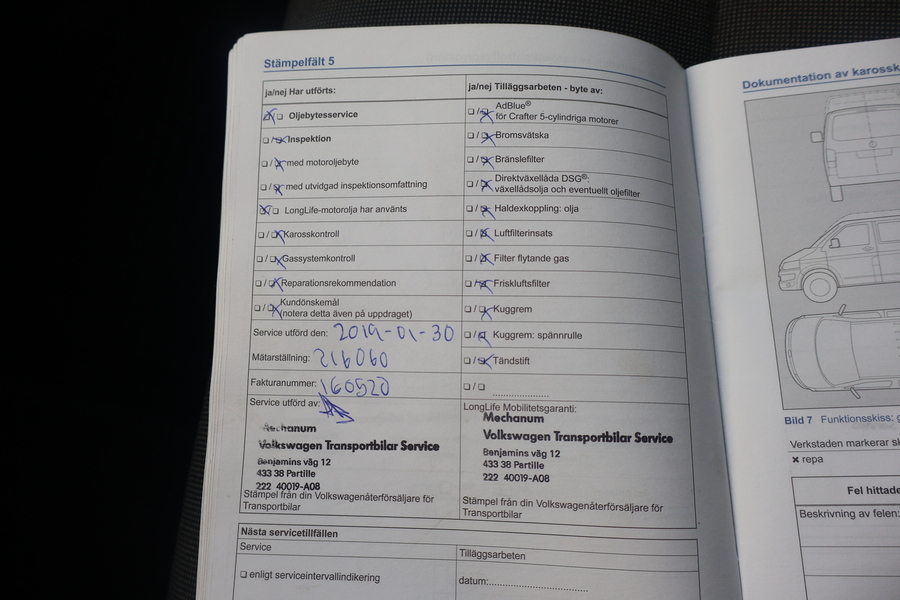 Stämpelfält 5
ja/nej Har utförts:
Oljebytesservice
Inspektion
med motoroljebyte
med utvidgad inspektionsomfattning
LongLife-motorolja har använts
Karosskontroll
Gassystemkontroll
Reparationsrekommendation
Kundönskemål
(notera detta även på uppdraget)
Service utförd den: 2019-01-30
Mätarställning: 216060
Fakturanummer: 160520
Service utförd av:
Mechanum
Volkswagen Transportbilar Service
Benjamins väg 12
433 38 Partille
222 40019-A08
Stämpel från din Volkswagenåterförsäljare för
Transportbilar
ja/nej Tilläggsarbeten - byte av:
AdBlue®
för Crafter 5-cylindriga motorer
Bromsvätska
Bränslefilter
Direktväxellåda DSG®:
växellådsolja och eventuellt oljefilter
Haldexkoppling: olja
Luftfilterinsats
Filter flytande gas
Friskluftsfilter
Kuggrem
Kuggrem: spännrulle
Tändstift
LongLife Mobilitetsgaranti:
Mechanum
Volkswagen Transportbilar Service
Benjamins väg 12
433 38 Partille
222 40019-A08
Stämpel från din Volkswagenåterförsäljare för
Transportbilar
Nästa servicetillfällen
Service
Tilläggsarbeten
enligt serviceintervallindikering
datum:
Dokumentation av kaross
Bild 7 Funktionsskiss:
Verkstaden markerar
repa
Fel hittade
Beskrivning av felen: